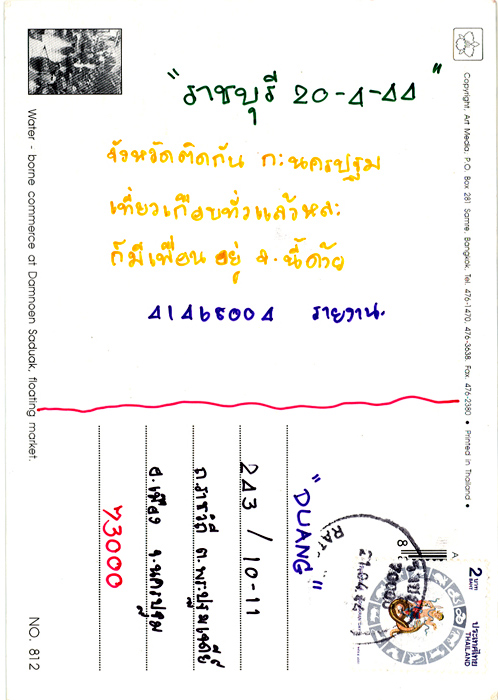 "ราชบุรี 20-4-44"
จังหวัดติดกัน กะนครปฐม
เที่ยวเกือบทั่วแล้วหละ
ก็มีเพื่อน อยู่ จ.นี้ด้วย
41465004 รายงาน.
"DUANG"
243 / 10-11
ถ.ราชวิถี ต.พระปฐมเจดีย์
อ.เมือง จ.นครปฐม
73000
Water - borne commerce at Damnoen Saduak, floating market.
NO. 812
Copyright, Art Media, P.O. Box 281 Samre, Bangkok, Tel. 476-1470, 476-3638, Fax. 476-2380 • Printed in Thailand •
2 บาท
BAHT
ประเทศไทย
THAILAND